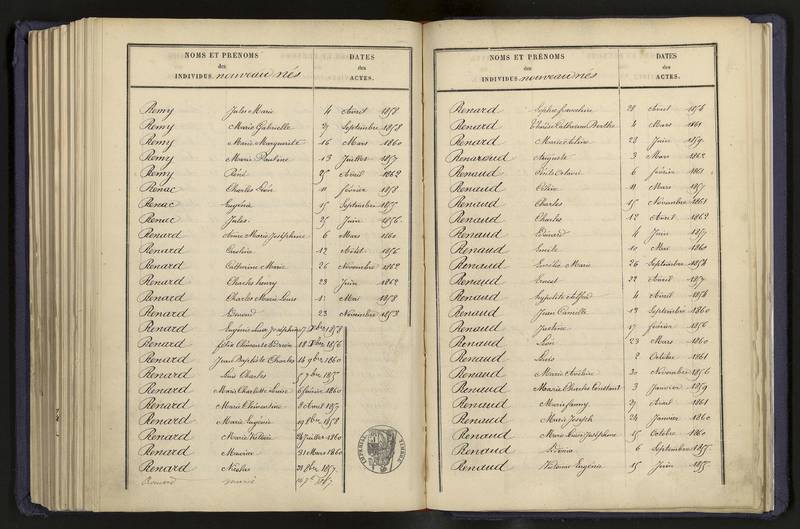 NOMS ET PRÉNOMS
des
INDIVIDUS. nouveau nés
DATES
des
ACTES.
Remy Jules Marie 4 Avril 1858
Remy Marie Gabrielle 27 Septembre 1858
Remy Marie Marguerite 16 Mars 1860
Remy Marie Pauline 13 Juillet 1857
Remy René 25 Avril 1862
Renac Charles Léon 11 février 1858
Renac Eugénie 15 Septembre 1855
Renac Jules 25 Juin 1856
Renard Anne Marie Joséphine 6 Mars 1860
Renard Caroline 12 Août 1856
Renard Catherine Marie 26 Novembre 1862
Renard Charles henry 23 Juin 1862
Renard Charles Marie Louis Mai 1858
Renard Edmond 23 Novembre 1853
Renard Eugénie Joséphine 17
Renard félix 18 1856
Renard Jean Baptiste Charles 14 9bre 1860
Renard Louis Charles 5 9bre 1855
Renard Marie Charlotte Louise 6 février 1860
Renard Marie Clémentine 8 Avril 1857
Renard Marie Eugénie 19 8bre 1858
Renard Marie Valérie 28 Juillet 1860
Renard Maurice 31 Mars 1860
Renard Nicolas 8bre 1857
Renard
TIMBRE IMPÉRIAL
NOMS ET PRÉNOMS
des
INDIVIDUS. nouveau nés
DATES
des
ACTES.
Renard Sophie 28 Avril 1856
Renard Catherine Berthe 4 Mars 1861
Renard Marie 28 Juin 1859
Renaroud Auguste 3 Mars 1862
Renaud Octavie 6 février 1861
Renaud Céline 11 Mars 1857
Renaud Charles 15 Novembre 1861
Renaud Charles 12 Avril 1862
Renaud Edouard 4 Juin 1857
Renaud Emile 10 Mai 1860
Renaud Marie 26 Septembre 1858
Renaud Ernest 22 Avril 1857
Renaud hypolite Alfred 4 Avril 1856
Renaud Jean Camille 13 Septembre 1860
Renaud Justine 17 février 1856
Renaud Léon 23 Mars 1860
Renaud Louis 2 Octobre 1861
Renaud Marie 30 Novembre 1856
Renaud Marie Charles Constant 3 Janvier 1859
Renaud Marie fanny 27 Avril 1861
Renaud Marie Joseph 24 Janvier 1860
Renaud Marie Louise Joséphine 15 Octobre 1860
Renaud 6 Septembre 1855
Renaud Victorine Eugénie 15 Juin 1855